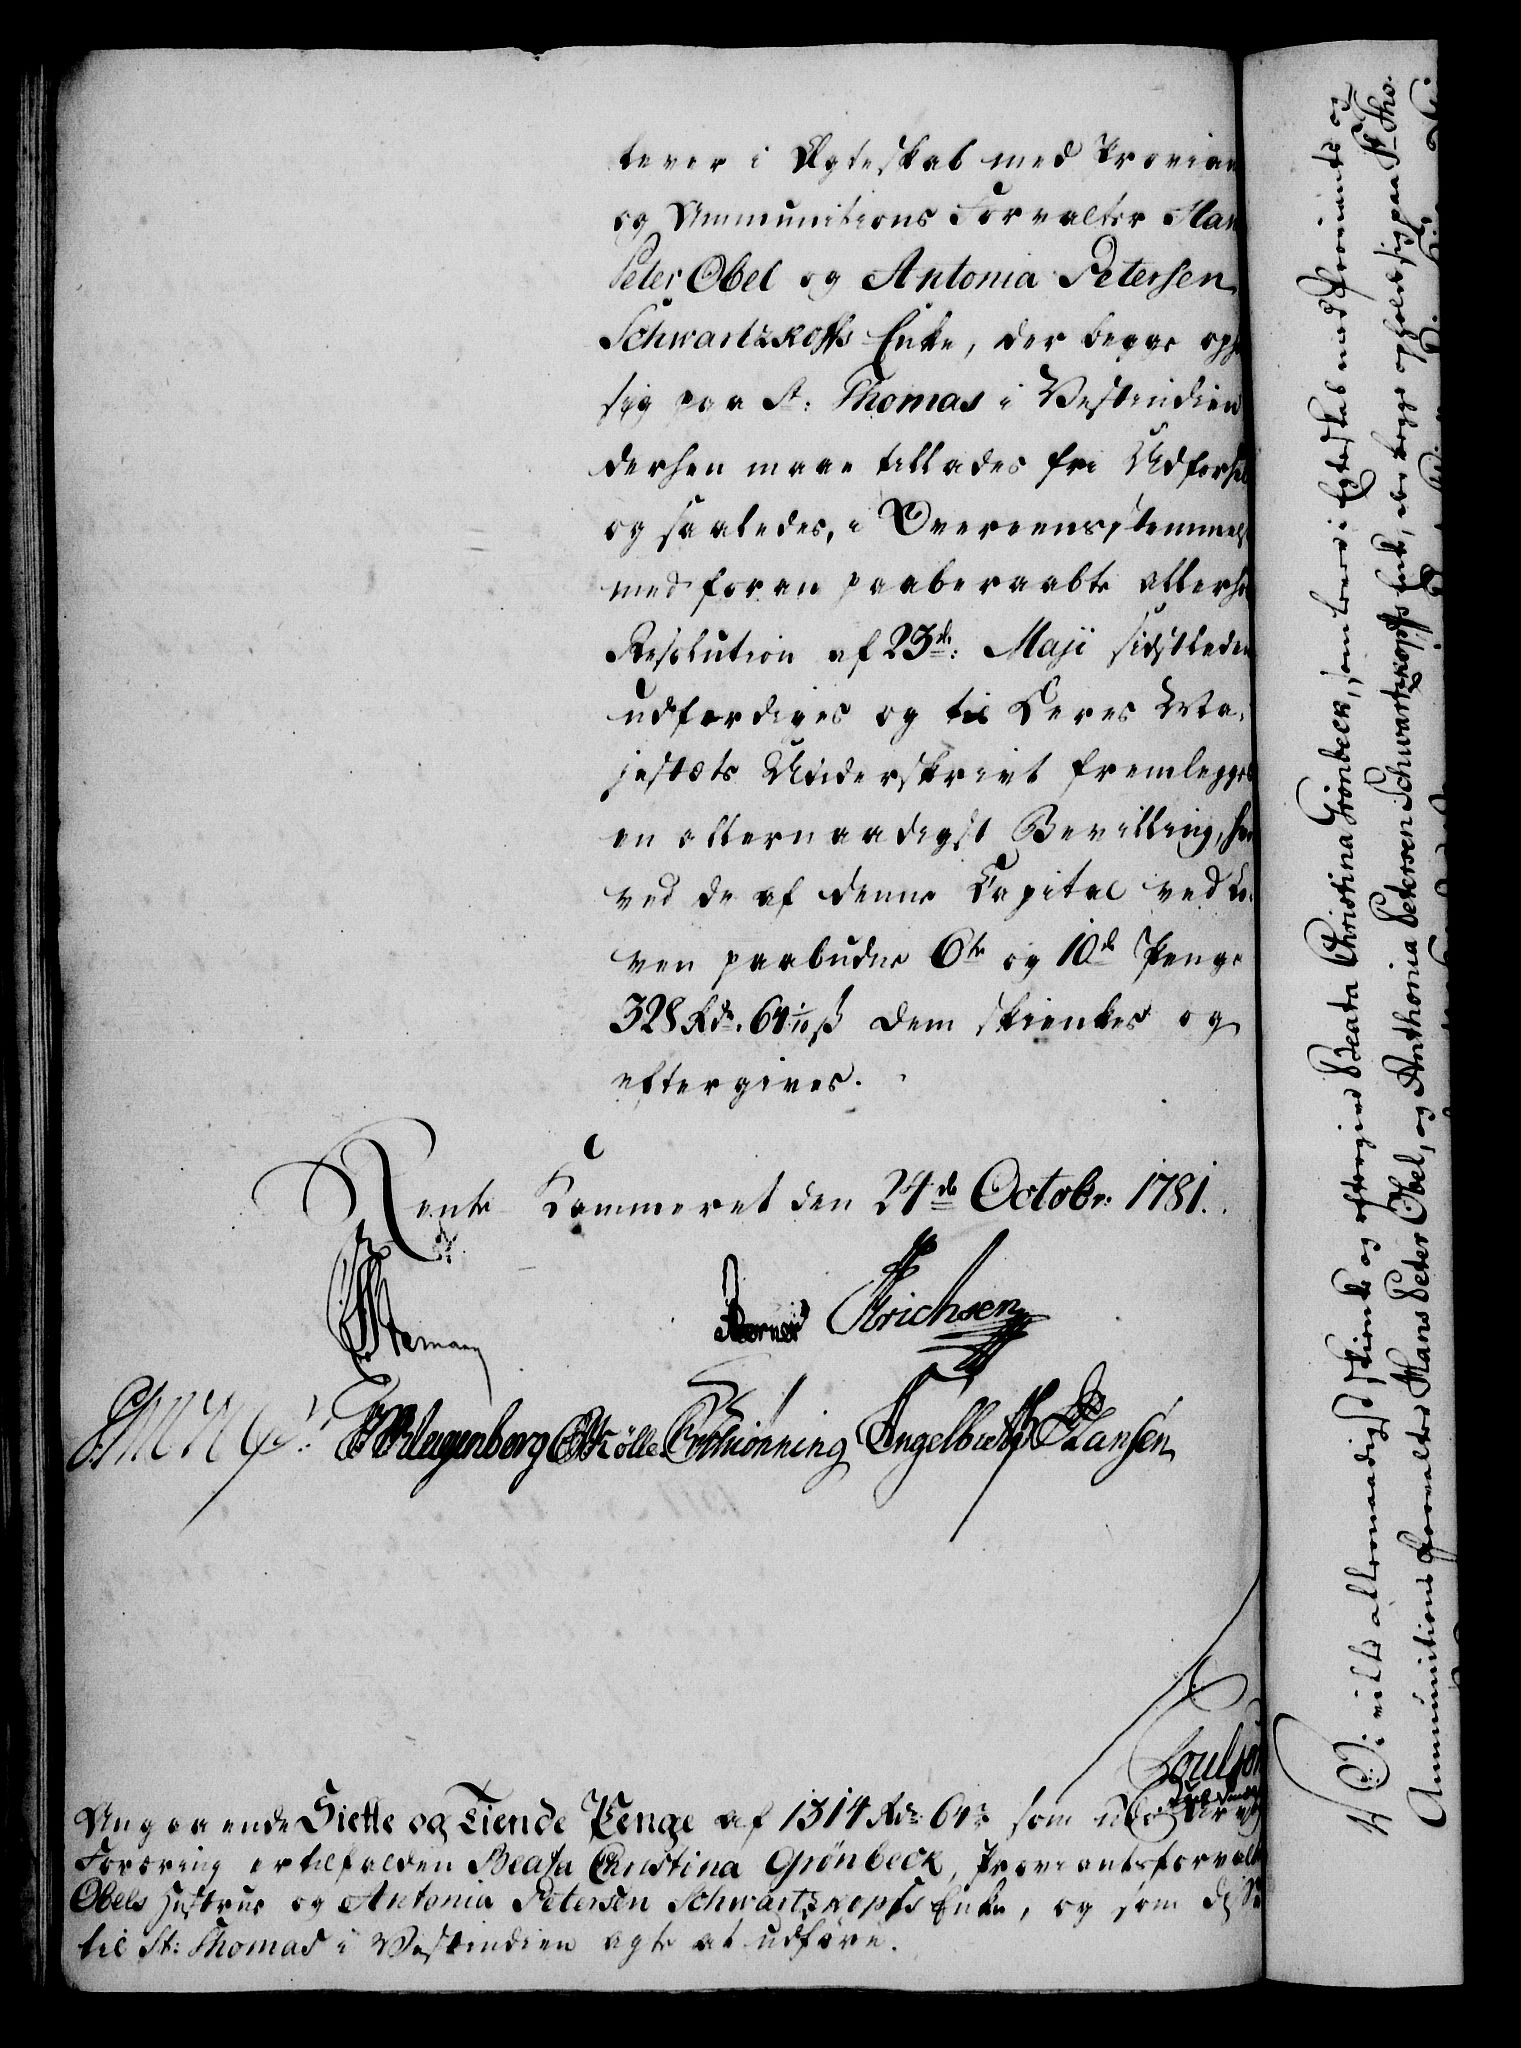 lever i Ægteskab med Provian
og Ammunitions Forvalter Han
Peter Obel og Antonia Petersen
Schwartzkoffs Enke, der begge oph
sig paa St: Thomas i Vestindien
derhen maae tillades fri Udførsel
og saaledes, i Overeensstemmels
med foran paaberaabte allerh
Resolution af 23de: Maji sidstleden
udfærdiges og til Deres Ma-
jestæts Underskrivt fremlegges
en allernaadigst Bevilling, hvor
ved de af denne Capital ved Lo-
ven paabudne 6te og 10de Penge
328 Rdr. 64 1/10 ß dem skienkes og
eftergives.
Rente Kammeret den 24de Octobr: 1781.
Stemann Berner Erichsen
Klagenborg Mølle Engelbreth Hansen
Poulson
Angaaende Siette og Tiende Penge af 1314 Rdr 64 ß som udi Arv og
Foræring er tilfalden Beata Christina Grönbeck, Proviantsforvalt
Obels Hustrue og Antonia Petersen Schwartzkopfs Enke, og som de
til St: Thomas i Vestindien agte at udføre.
Vi ville allernaadigst skienke og eftergive Beata Christina Grönbeck, som lever i Egteskab med Proviants og
Ammunitions Forvalter Hans Peter Obel, og Anthonia Petersen Schwartzkopfs Enke, der begge opholde sig paa St. Tho-